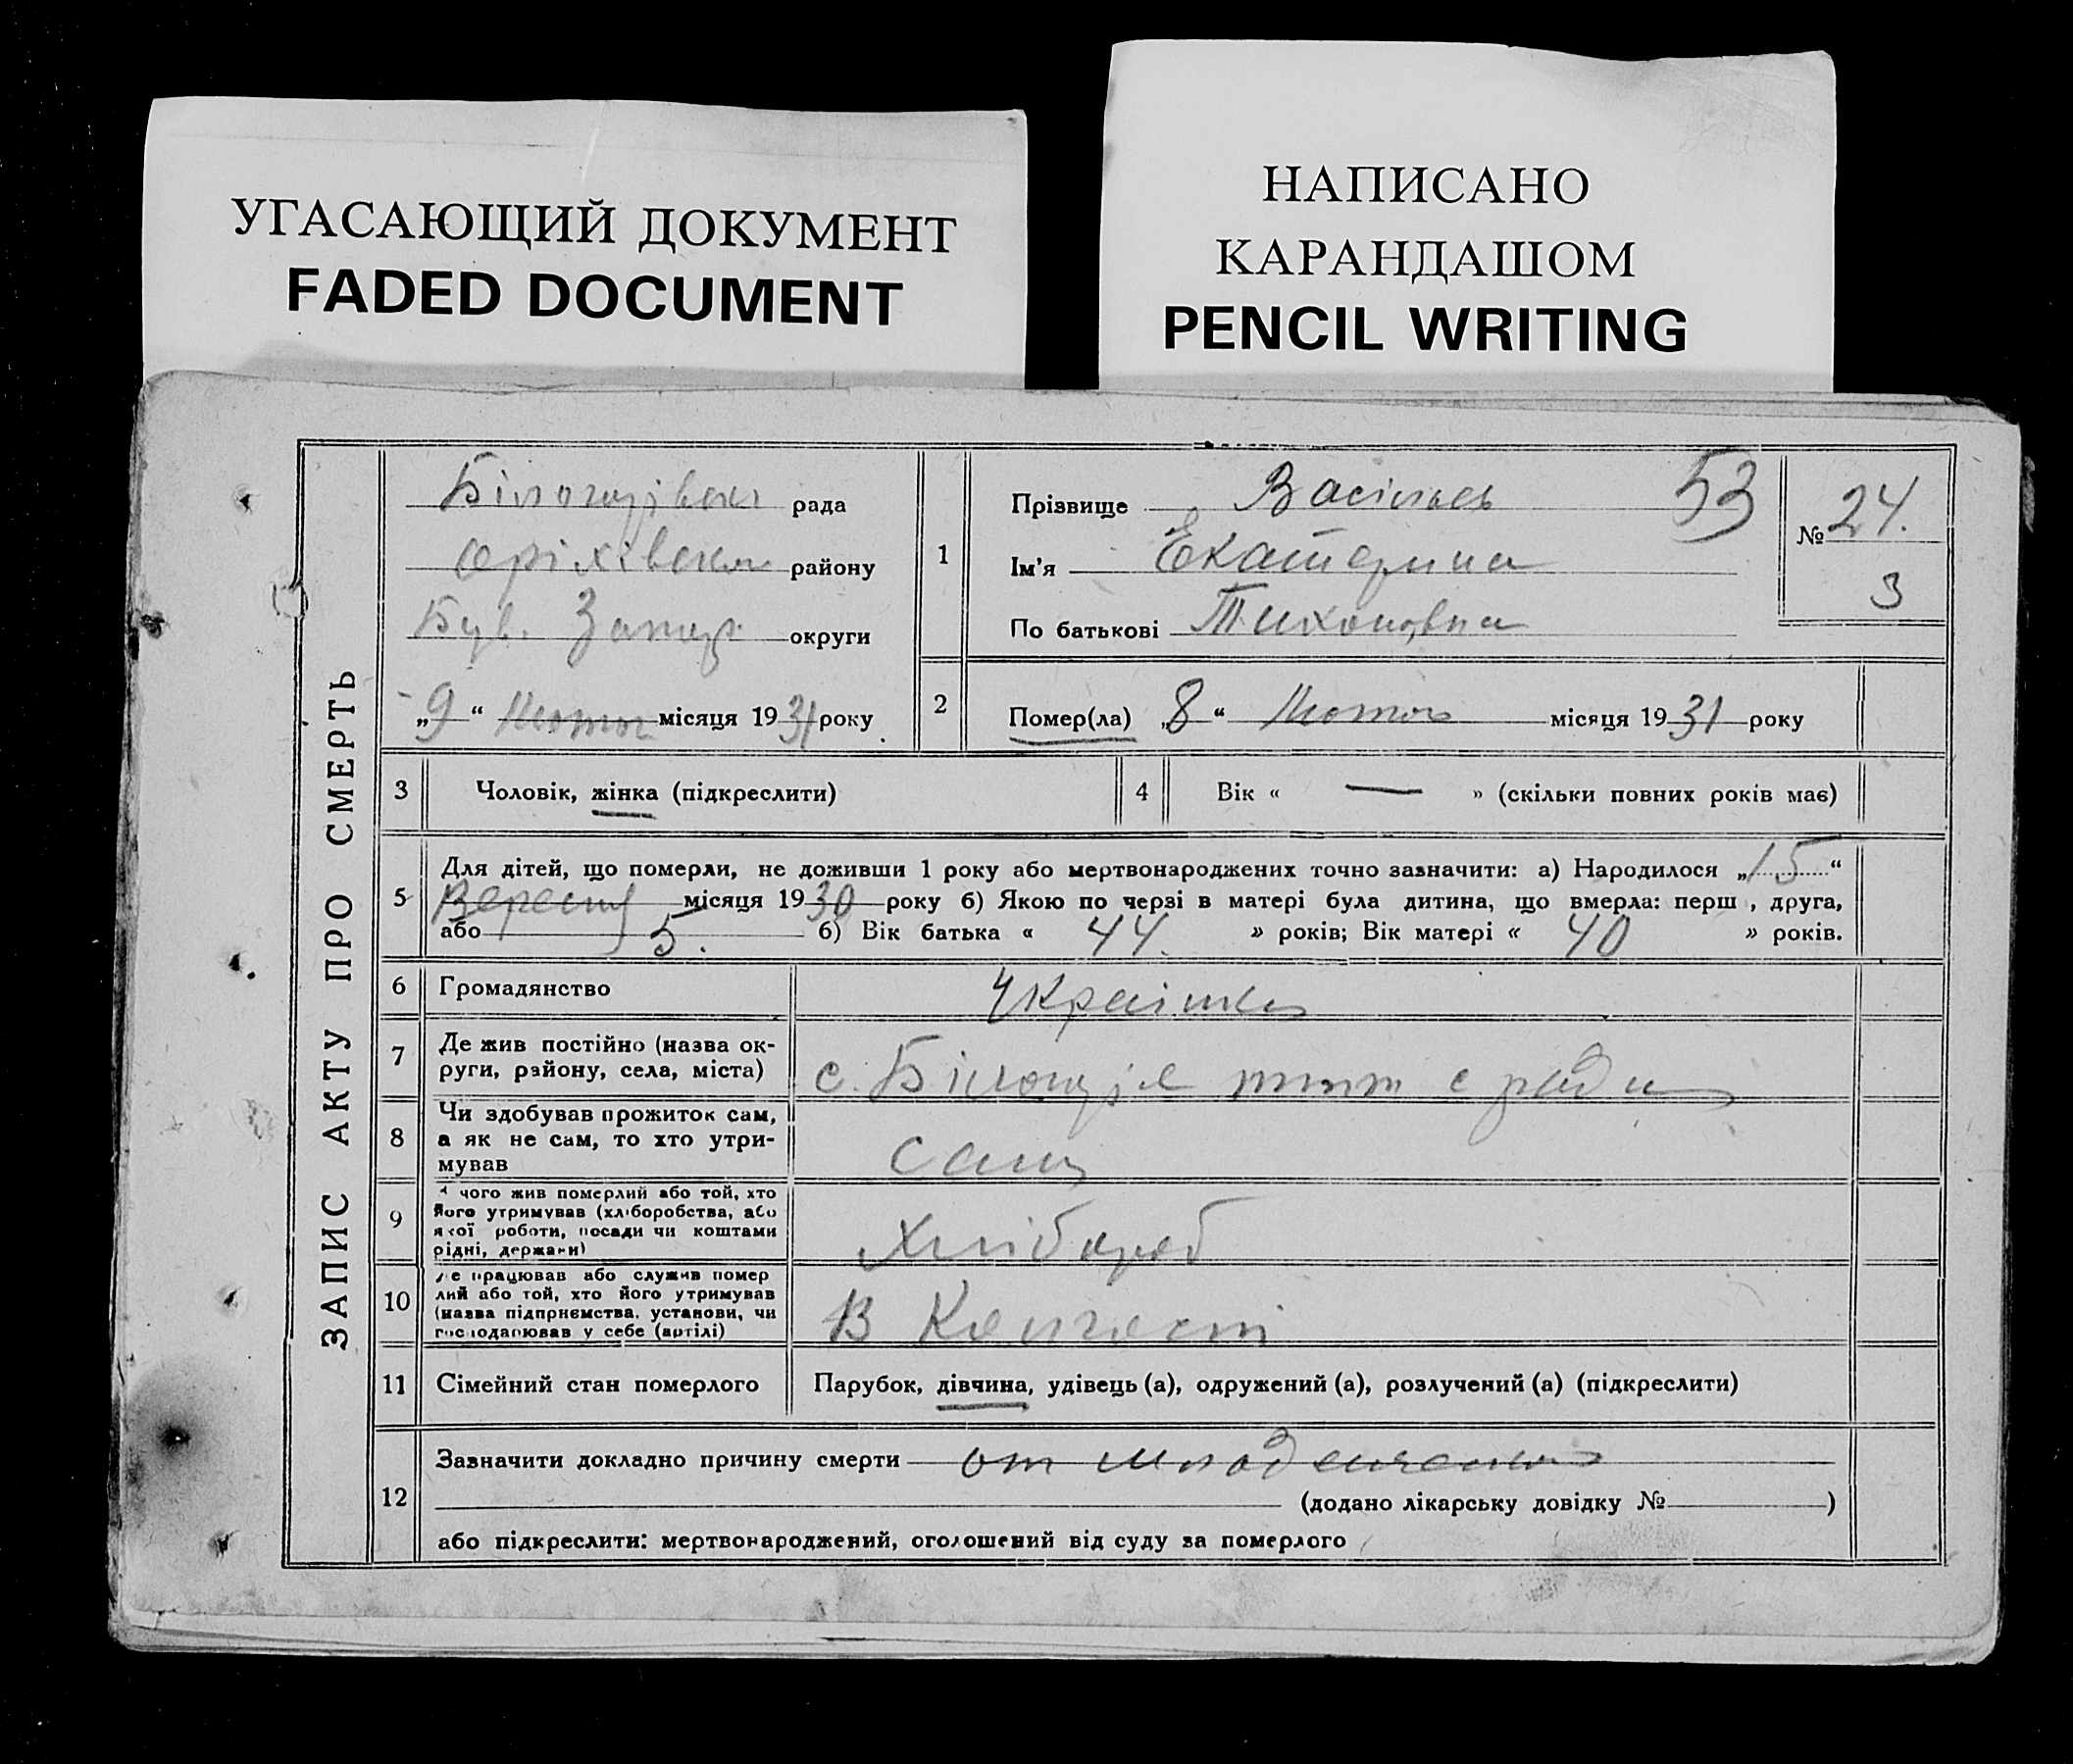 УГАСАЮЩИЙ ДОКУМЕНТ
FADED DOCUMENT
НАПИСАНО
КАРАНДАШОМ
PENCIL WRITING
ЗАПИС АКТУ ПРО СМЕРТЬ
рада
району
Був. Запор. округи
„9“ Лютого місяця 1931 року
53
№ 24.
3
1
Прізвище
Ім'я Екатерина
По батькові Тихоновна
2
Помер(ла) „8“ Лютого місяця 1931 року
3 Чоловік, жінка (підкреслити)
4 Вік « — » (скільки повних років має)
5
Для дітей, що померли, не доживши 1 року або мертвонароджених точно зазначити: а) Народилося „15“
Вересня місяця 1930 року б) Якою по черзі в матері була дитина, що вмерла: перш , друга,
або 5. б) Вік батька « 44 » років; Вік матері « 40 » років.
6 Громадянство Українка
7
Де жив постійно (назва ок-
руги, району, села, міста)
с.
8
Чи здобував прожиток сам,
а як не сам, то хто утри-
мував
9
чого жив померлий або той, хто
його утримував (хліборобства, або
якої роботи, посади чи коштами
рідні, держави)
Хлібороб
10
е працював або служив помер
лий або той, хто його утримував
(назва підприємства, установи, чи
господарював у себе (артілі)
В
11 Сімейний стан померлого Парубок, дівчина, удівець (а), одружений (а), розлучений (а) (підкреслити)
12
Зазначити докладно причину смерти от
(додано лікарську довідку № )
або підкреслити: мертвонароджений, оголошений від суду за померлого